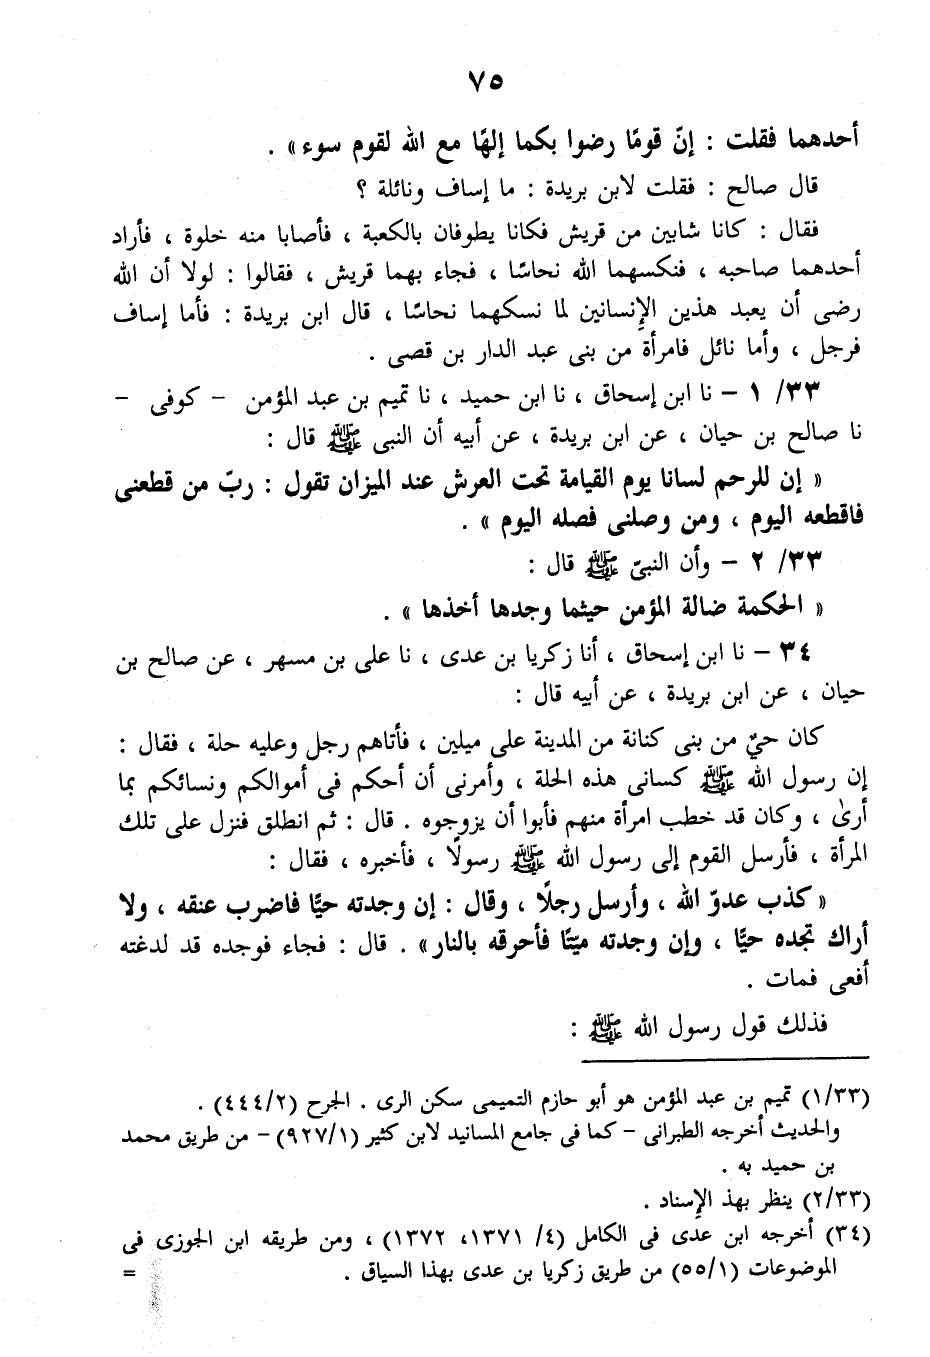 ٧٥
أحدهما فقلت : إنّ قومًا رضوا بكما إلهًا مع الله لقوم سوء» .
قال صالح : فقلت لابن بريدة : ما إساف ونائلة ؟
فقال : كانا شابين من قريش فكانا يطوفان بالكعبة ، فأصابا منه خلوة ، فأراد
أحدهما صاحبه ، فنكسهما الله نحاسًا ، فجاء بهما قريش ، فقالوا : لولا أن الله
رضى أن يعبد هذين الإنسانين لما نسكهما نحاسًا ، قال ابن بريدة : فأما إساف
فرجل ، وأما نائل فامرأة من بنى عبد الدار بن قصى .
٣٣/ ١ - نا ابن إسحاق ، نا ابن حميد ، نا تميم بن عبد المؤمن - كوفى -
نا صالح بن حيان ، عن ابن بريدة ، عن أبيه أن النبى ﷺ قال :
« إن للرحم لسانا يوم القيامة تحت العرش عند الميزان تقول : ربّ من قطعنى
فاقطعه اليوم ، ومن وصلنى فصله اليوم » .
٣٣/ ٢ - وأن النبىّ ﷺ قال :
« الحكمة ضالة المؤمن حيثما وجدها أخذها » .
٣٤ - نا ابن إسحاق ، أنا زكريا بن عدى ، نا على بن مسهر ، عن صالح بن
حيان ، عن ابن بريدة ، عن أبيه قال :
كان حيٌ من بنى كنانة من المدينة على ميلين ، فأتاهم رجل وعليه حلة ، فقال :
إن رسول الله ﷺ كسانى هذه الحلة ، وأمرنى أن أحكم فى أموالكم ونسائكم بما
أرىٰ ، وكان قد خطب امرأة منهم فأبوا أن يزوجوه . قال : ثم انطلق فنزل على تلك
المرأة ، فأرسل القوم إلى رسول الله ﷺ رسولًا ، فأخبره ، فقال :
« كذب عدوّ الله ، وأرسل رجلًا ، وقال : إن وجدته حيًّا فاضرب عنقه ، ولا
أراك تجده حيًّا ، وإن وجدته ميّتًا فأحرقه بالنار» . قال : فجاء فوجده قد لدغته
أفعى فمات .
فذلك قول رسول الله ﷺ :
(١/٣٣) تميم بن عبد المؤمن هو أبو حازم التميمى سكن الرى . الجرح (٤٤٤/٢) .
والحديث أخرجه الطبرانى - كما فى جامع المسانيد لابن كثير (٩٢٧/١) - من طريق محمد
بن حميد به .
(٢/٣٣) ينظر بهذ الإسناد .
(٣٤) أخرجه ابن عدى فى الكامل (٤/ ١٣٧١، ١٣٧٢) ، ومن طريقه ابن الجوزى فى
الموضوعات (٥٥/١) من طريق زكريا بن عدى بهذا السياق . =